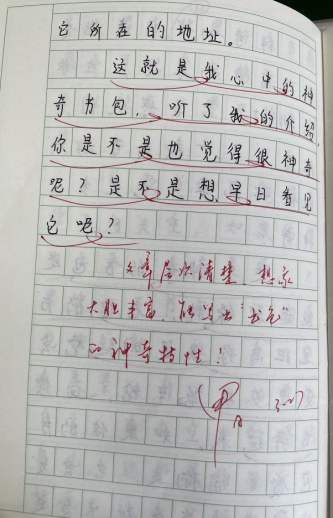 它所在的地址。
这就是我心中的神
奇书包，听了我的介绍，
你是不是也觉得很神奇
呢？是不是想早日看见
它呢？
文章层次清楚，想象
大胆丰富，能写出“书包”
的神奇特性！
甲
3.27